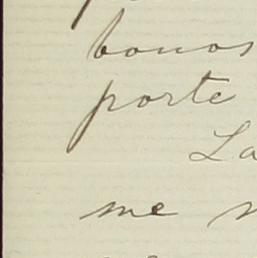 bonos
porte
La
me